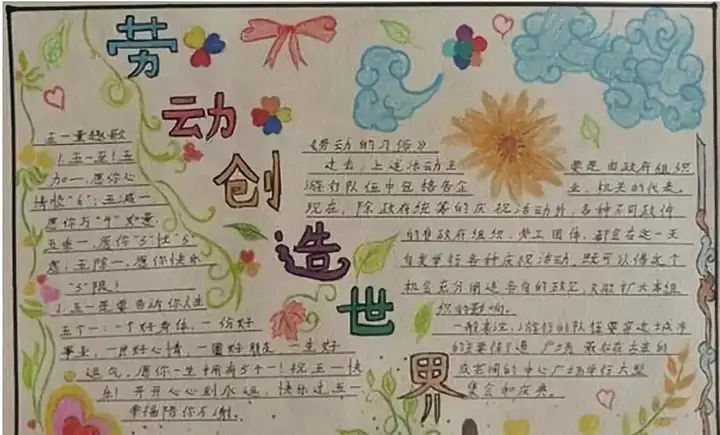 劳动创造世界
五一童趣歌
1.五一五!五
加一,愿你心
情快"6";五减一
愿你与"4"如意
五乘一,愿你"5"忧"5"
虑;五除一,愿你快乐
"5"限!
2.五一是要告诉你人生
五个一:一个好身体,一份好
事业,一片好心情,一圈好朋友,一生好
运气,愿你一生拥有5个一!祝五一快
乐!开开心心到永远,快乐过五一
幸福陪你左右。
《劳动的习俗》
过去,上述活动主要是由政府组织
游行队伍中包括各企业、机关的代表。
现在,除政府统筹的庆祝活动外,各种不同政体
的非政府组织、劳工团体,都会在这一天
自发举行各种庆祝活动,既可以借此个
机会充分阐述各自的政见,又能扩大本组
织的影响。
一般来说,游行的队伍要穿过城市
的主要街道、广场,最后在古老的
或者闻的中心广场举行大型
集会和庆典。